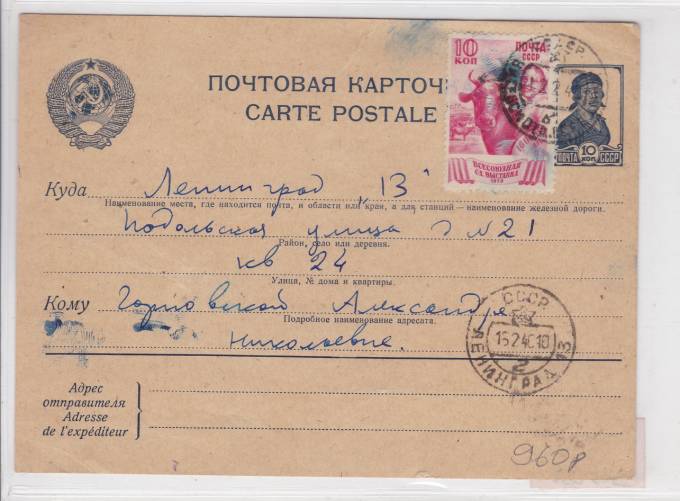 ПОЧТОВАЯ КАРТОЧ
CARTE POSTALE
10 КОП
ПОЧТА СССР
ВСЕСОЮЗНАЯ
С.Х. ВЫСТАВКА
ПОЧТА 10 КОП СССР
Куда Ленинград "13"
Наименование места, где находится почта, и области или края, а для станций — наименование железной дороги.
Подольская улица д N 21
Район, село или деревня.
кв 24
Улица, № дома и квартиры.
Кому Горновской Александре
Подробное наименование адресата.
Николаевне.
СССР
15.2.40.10
2
ЛЕНИНГРАД 13
Адрес
отправителя
Adresse
de l'expéditeur
960р